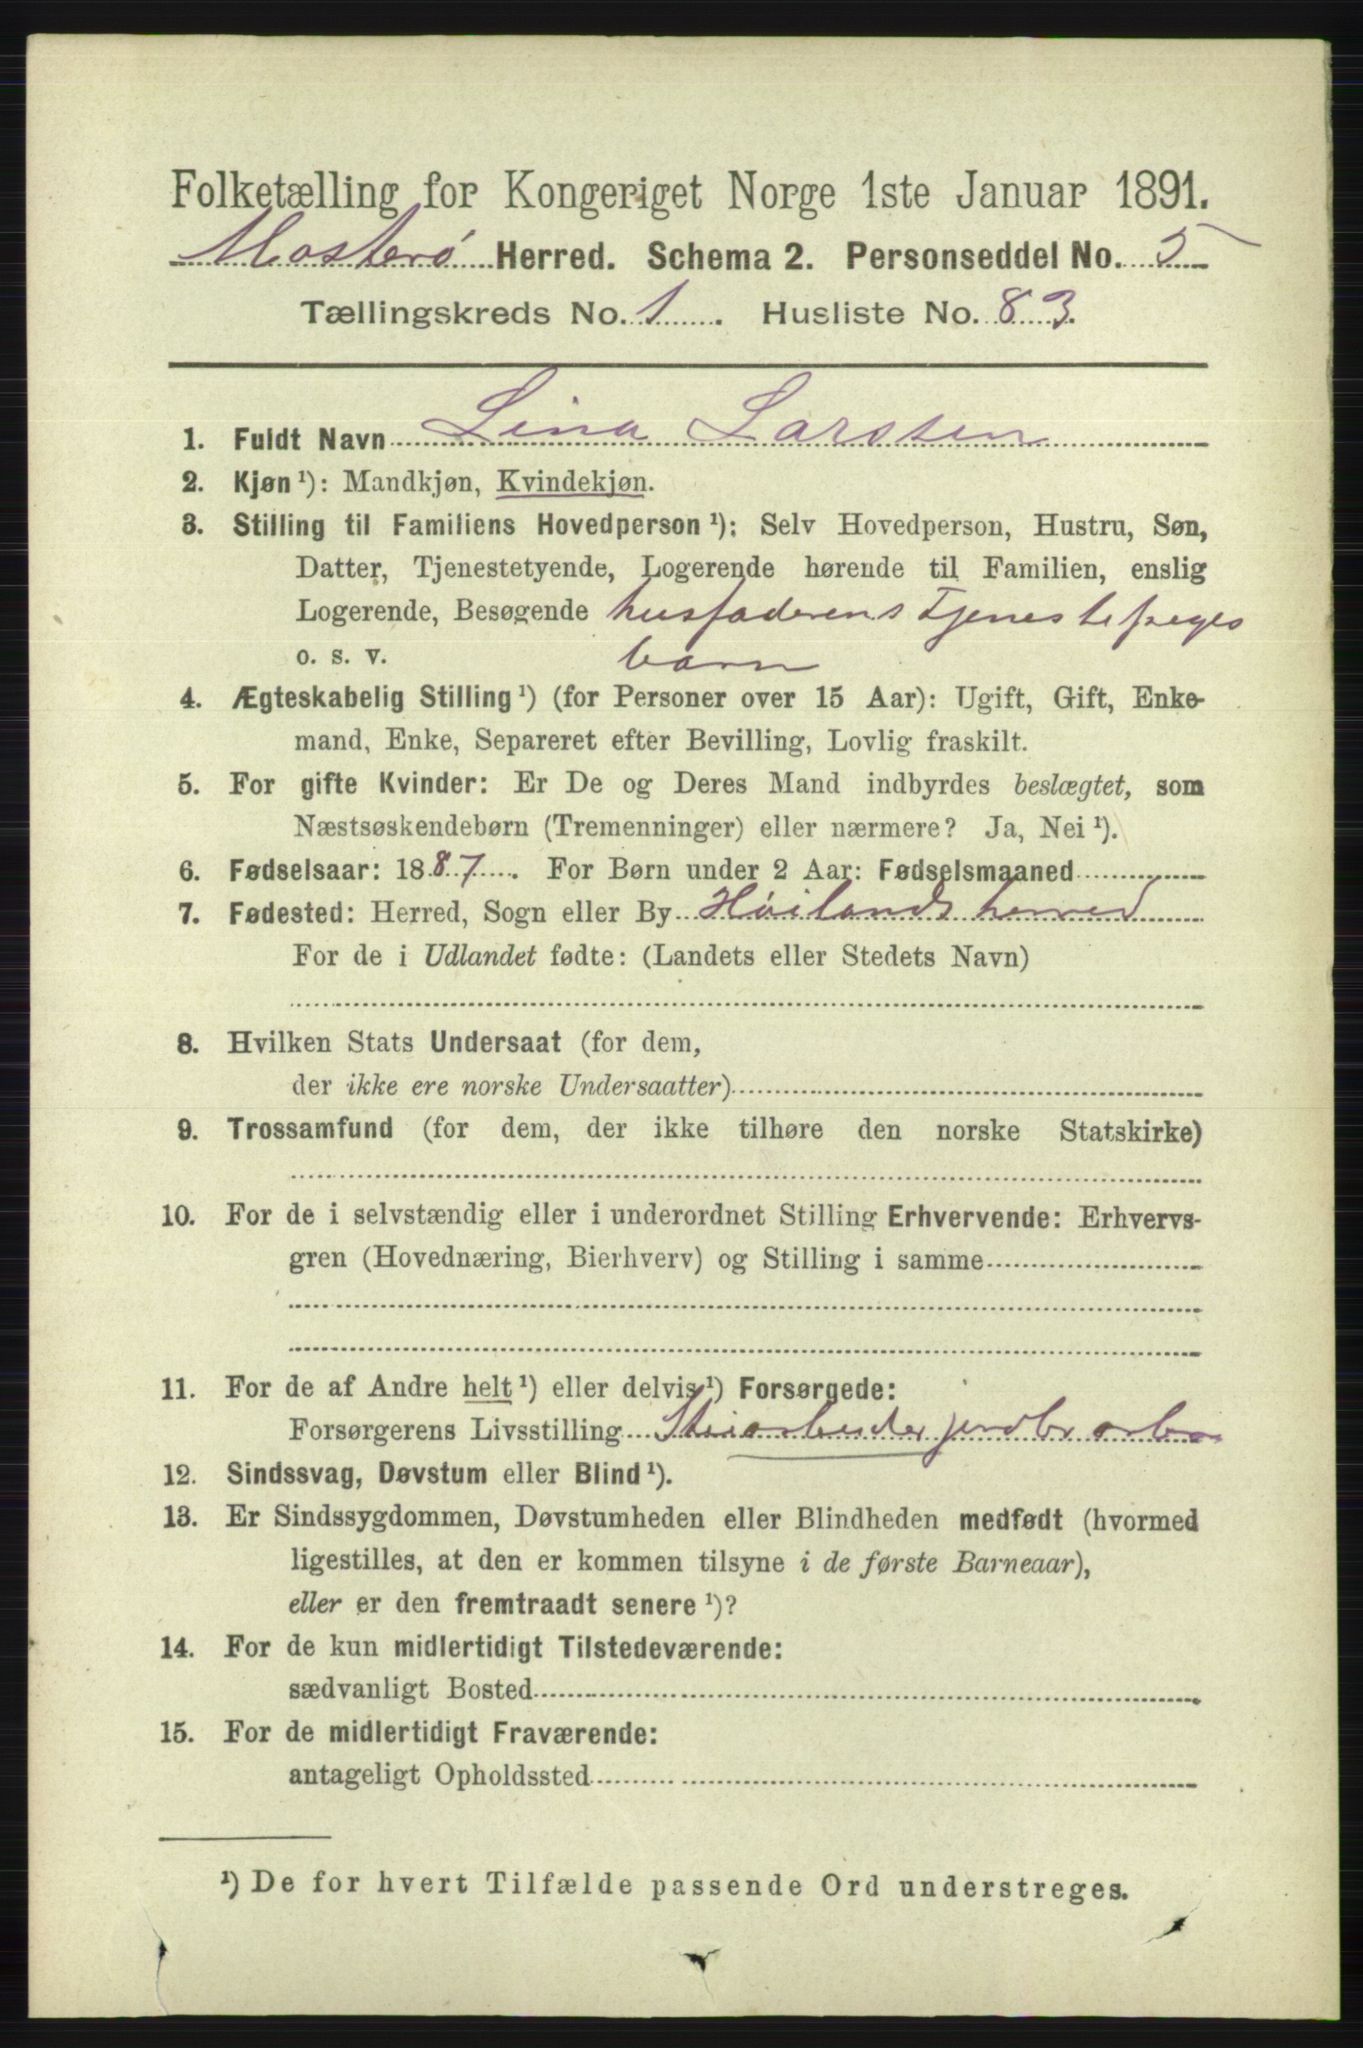 Folketælling for Kongeriget Norge 1ste Januar 1891.
Mosterø Herred. Schema 2. Personseddel No. 5
Tællingskreds No. 1. Husliste No. 83.
1. Fuldt Navn Lina Larsen
2. Kjøn ¹): Mandkjøn, Kvindekjøn.
3. Stilling til Familiens Hovedperson ¹): Selv Hovedperson, Hustru, Søn,
Datter, Tjenestetyende, Logerende hørende til Familien, enslig
Logerende, Besøgende husfaderens Tjenestepiges
o. s. v. barn
4. Ægteskabelig Stilling ¹) (for Personer over 15 Aar): Ugift, Gift, Enke-
mand, Enke, Separeret efter Bevilling, Lovlig fraskilt.
5. For gifte Kvinder: Er De og Deres Mand indbyrdes beslægtet, som
Næstsøskendebørn (Tremenninger) eller nærmere? Ja, Nei ¹).
6. Fødselsaar: 1887. For Børn under 2 Aar: Fødselsmaaned
7. Fødested: Herred, Sogn eller By Høilands herred
For de i Udlandet fødte: (Landets eller Stedets Navn)
8. Hvilken Stats Undersaat (for dem,
der ikke ere norske Undersaatter)
9. Trossamfund (for dem, der ikke tilhøre den norske Statskirke)
10. For de i selvstændig eller i underordnet Stilling Erhvervende: Erhvervs-
gren (Hovednæring, Bierhverv) og Stilling i samme
11. For de af Andre helt ¹) eller delvis ¹) Forsørgede:
Forsørgerens Livsstilling
12. Sindssvag, Døvstum eller Blind ¹).
13. Er Sindssygdommen, Døvstumheden eller Blindheden medfødt (hvormed
ligestilles, at den er kommen tilsyne i de første Barneaar),
eller er den fremtraadt senere ¹)?
14. For de kun midlertidigt Tilstedeværende:
sædvanligt Bosted
15. For de midlertidigt Fraværende:
antageligt Opholdssted
¹) De for hvert Tilfælde passende Ord understreges.